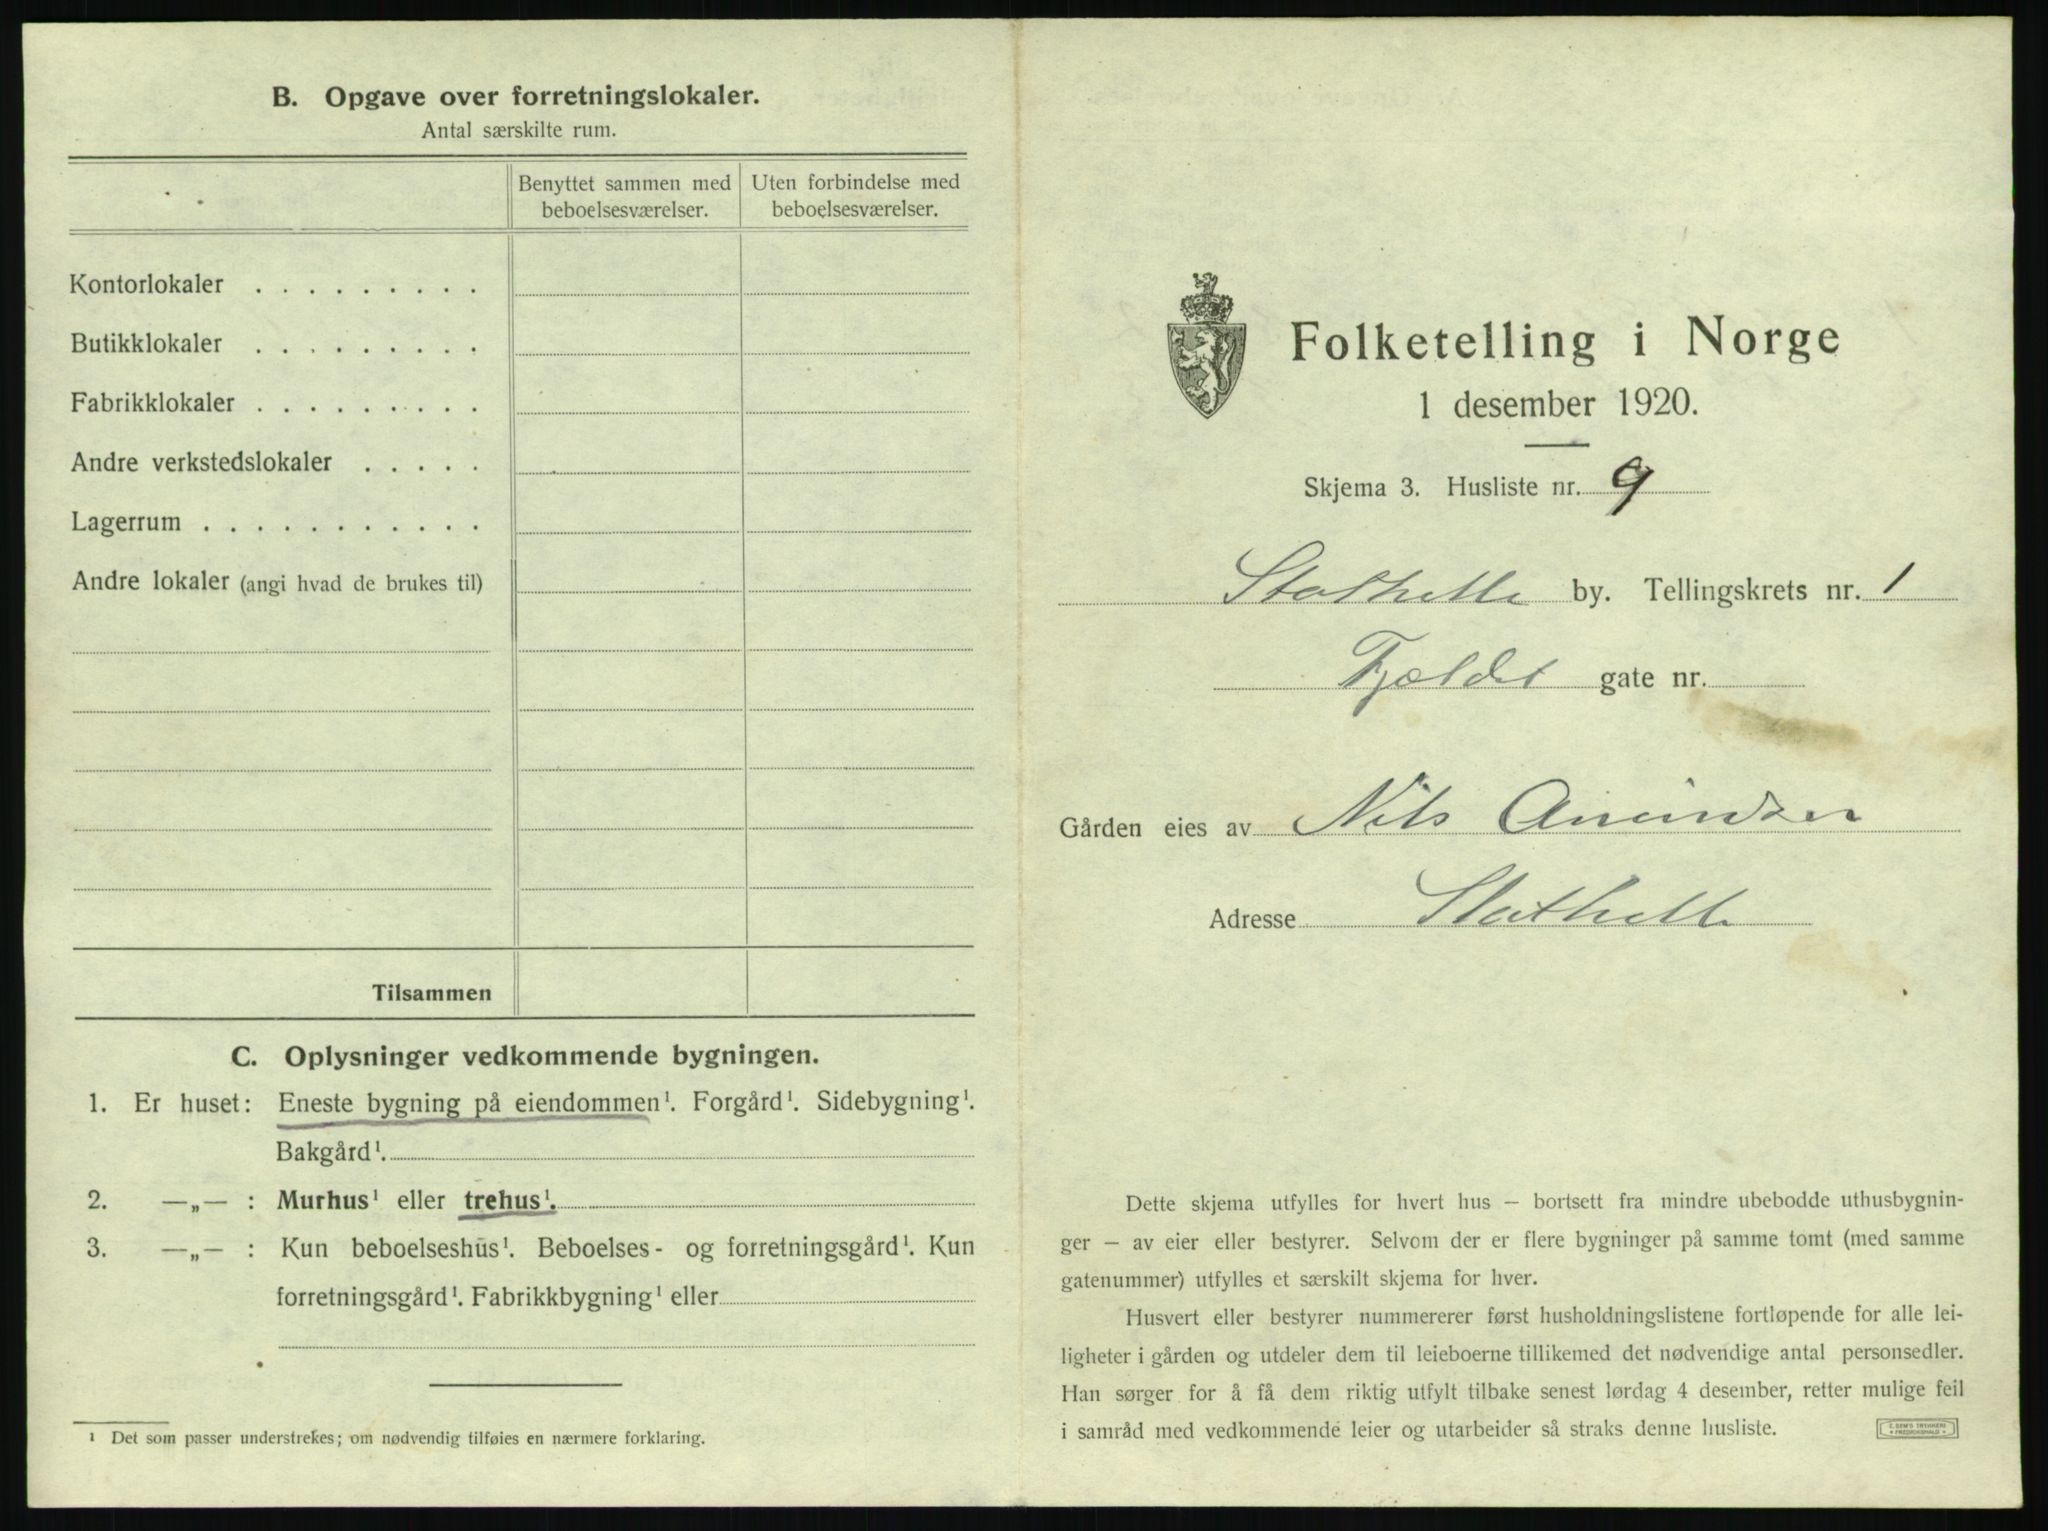 B. Opgave over forretningslokaler.
Antal særskilte rum.
Benyttet sammen med beboelsesværelser.
Uten forbindelse med beboelsesværelser.
Kontorlokaler . . . . . . . . .
Butikklokaler . . . . . . . . .
Fabrikklokaler . . . . . . . . .
Andre verkstedslokaler . . . . .
Lagerrum . . . . . . . . . . .
Andre lokaler (angi hvad de brukes til)
Tilsammen
C. Oplysninger vedkommende bygningen.
1. Er huset: Eneste bygning på eiendommen¹. Forgård¹. Sidebygning¹.
Bakgård¹.
2. —„— : Murhus¹ eller trehus¹.
3. —„— : Kun beboelseshus¹. Beboelses- og forretningsgård¹. Kun
forretningsgård¹. Fabrikkbygning¹ eller
¹ Det som passer understrekes; om nødvendig tilføies en nærmere forklaring.
Folketelling i Norge
1 desember 1920.
Skjema 3. Husliste nr. 9
Stathelle by. Tellingskrets nr. 1
Fjeldet gate nr.
Gården eies av Nils
Adresse Stathelle
Dette skjema utfylles for hvert hus — bortsett fra mindre ubebodde uthusbygnin-
ger — av eier eller bestyrer. Selvom der er flere bygninger på samme tomt (med samme
gatenummer) utfylles et særskilt skjema for hver.
Husvert eller bestyrer nummererer først husholdningslistene fortløpende for alle lei-
ligheter i gården og utdeler dem til leieboerne tillikemed det nødvendige antal personsedler.
Han sørger for å få dem riktig utfylt tilbake senest lørdag 4 desember, retter mulige feil
i samråd med vedkommende leier og utarbeider så straks denne husliste.
E. SEM'S TRYKKERI
• FREDRIKSHALD •